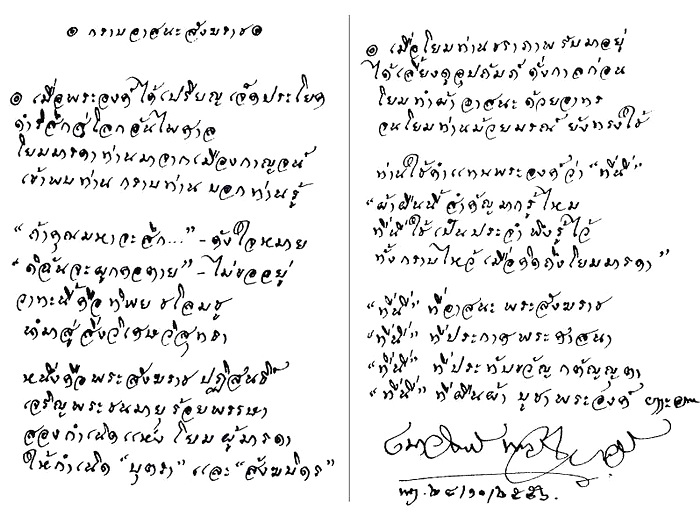 ๏ กราบอาสนะสังฆราช ๏
๏ เมื่อพระองค์ได้เปรียญเจ็ดประโยค
ดำริสึกสู่โลกอันไพศาล
โยมมารดาท่านมาจากเมืองกาญจน์
เข้าพบท่าน กราบท่าน บอกท่านรู้
“ถ้าคุณมหาจะสึก...” - ดังใจหมาย
“ดิฉันจะผูกคอตาย” - ไม่ขออยู่
วาทะนี้คือทิพย ชโลมชู
นำมาสู่สิ่งวิเศษวิสุทธา
หนึ่งคือพระสังฆราช ปฏิสนธิ์
เจริญพระชนมายุร้อยพรรษา
สองกำเนิดแห่งโยมผู้มารดา
ให้กำเนิด “บุตรา” และ “สังฆบิดร”
๏ เมื่อโยมท่านชราภาพ รับมาอยู่
ได้เลี้ยงดูอุปถัมภ์ ดั่งกาลก่อน
โยมทำผ้าอาสนะด้วยอาทร
จนโยมท่านม้วยมรณ์ ยังทรงใช้
ท่านใช้คำแทนพระองค์ว่า “ที่นี่”
“ผ้าผืนนี้ สำคัญมากรู้ไหม
ที่นี่ใช้เป็นประจำ พึงรู้ไว้
ทั้งกราบไหว้ เมื่อคิดถึงโยมมารดา”
“ที่นี่” ที่อาสนะ พระสังฆราช
“ที่นี่” ที่ประกาศพระศาสนา
“ที่นี่” ที่ประทับขวัญ กตัญญุตา
“ที่นี่” ที่ผืนผ้า บูชาพระองค์